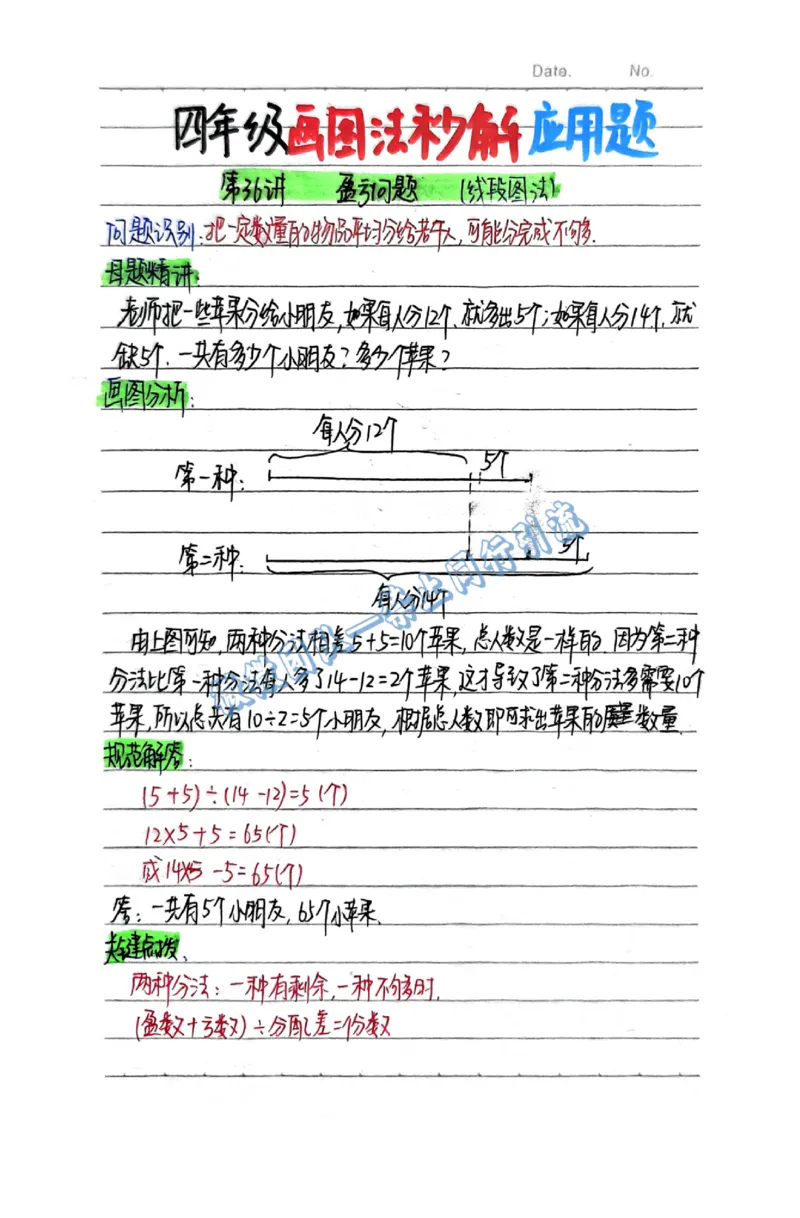 Date. No.
四年级画图法秒解应用题
第36讲 盈亏问题 (线段图法)
问题识别:把一定数量的物品平均分给若干人,可能分完或不够多.
母题精讲:
老师把一些苹果分给小朋友,如果每人分12个,就多出5个;如果每人分14个,就
缺5个.一共有多少个小朋友?多少个苹果?
画图分析:
每人分12个
第一种: 5个
第二种: 5个
每人分14个
由上图可知,两种分法相差5+5=10个苹果,总人数是一样的.因为第二种
分法比第一种分法每人多了14-12=2个苹果,这才导致了第二种分法多需要10个
苹果,所以总共有10÷2=5个小朋友,根据总人数即可求出苹果的数量.
规范解答:
(5+5)÷(14-12)=5(个)
12×5+5=65(个)
或14×5-5=65(个)
答:一共有5个小朋友,65个小苹果.
关键点拨.
两种分法:一种有剩余,一种不够多时.
(盈数+亏数)÷分配差=份数